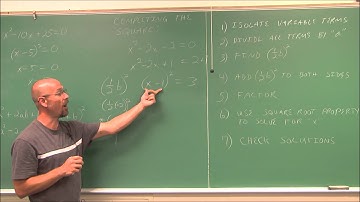 x² - 10x + 25 = 0
(x - 5)² = 0
x - 5 = 0
COMPLETING THE
SQUARE:
x² - 2x - 2 = 0
x² - 2x + 1 = 2 + 1
(½b)²
(x - 1)² = 3
1) ISOLATE VARIABLE TERMS
2) DIVIDE ALL TERMS BY "a"
3) FIND (½b)²
4) ADD (½b)² TO BOTH SIDES
5) FACTOR
6) USE SQUARE ROOT PROPERTY
TO SOLVE FOR "x"
7) CHECK SOLUTIONS